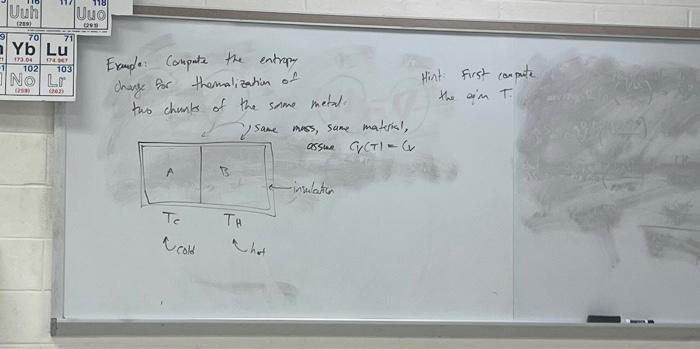 116 117 118
Uuh Uuo
(289) (293)
70 71
Yb Lu
173.04 174.967
102 103
No Lr
(259) (262)
Example: Compute the entropy
change for thermalization of
two chunks of the same metal.
same mass, same material,
assume Cv(T) = Cv
A B
insulation
Tc TH
cold hot
Hint: First compute
the eq'm T.